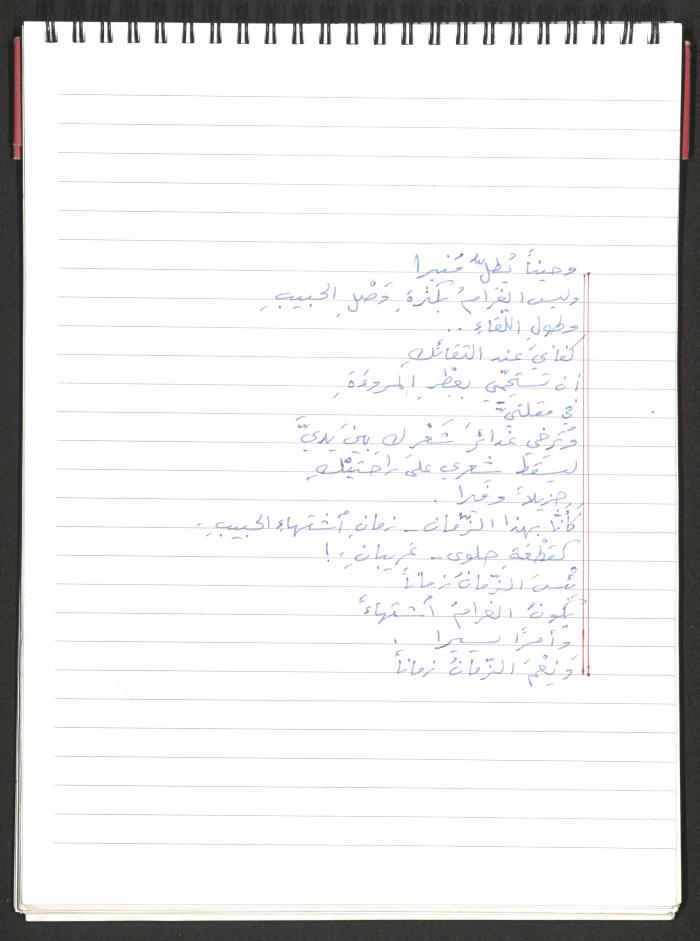 وحيناً يُطلُّ مُنيرا
وليس الغَرامُ بكَثرةِ وَصْلِ الحبيبِ
وطولِ اللّقاءِ ..
كفانيَ عند التقائكِ
أن تَستَحِمّي بعِطْرِ المروءَةِ
في مقلتيَّ
وتُرخي غدائرَ شَعْركِ بينَ يديَّ
ليسقطَ شعري على راحَتَيْكِ
جزيلاً وفيرا .
كأنّا بهذا الزّمان - زمانِ اُشتهاءِ الحبيبِ
كقطْعَةِ حلوى - غريبانِ !
بئسَ الزّمانُ زماناً
يكونُ الغرامُ اُشتهاءً
وأمرًا يسيرا .
وَنِعْمَ الزّمانُ زماناً